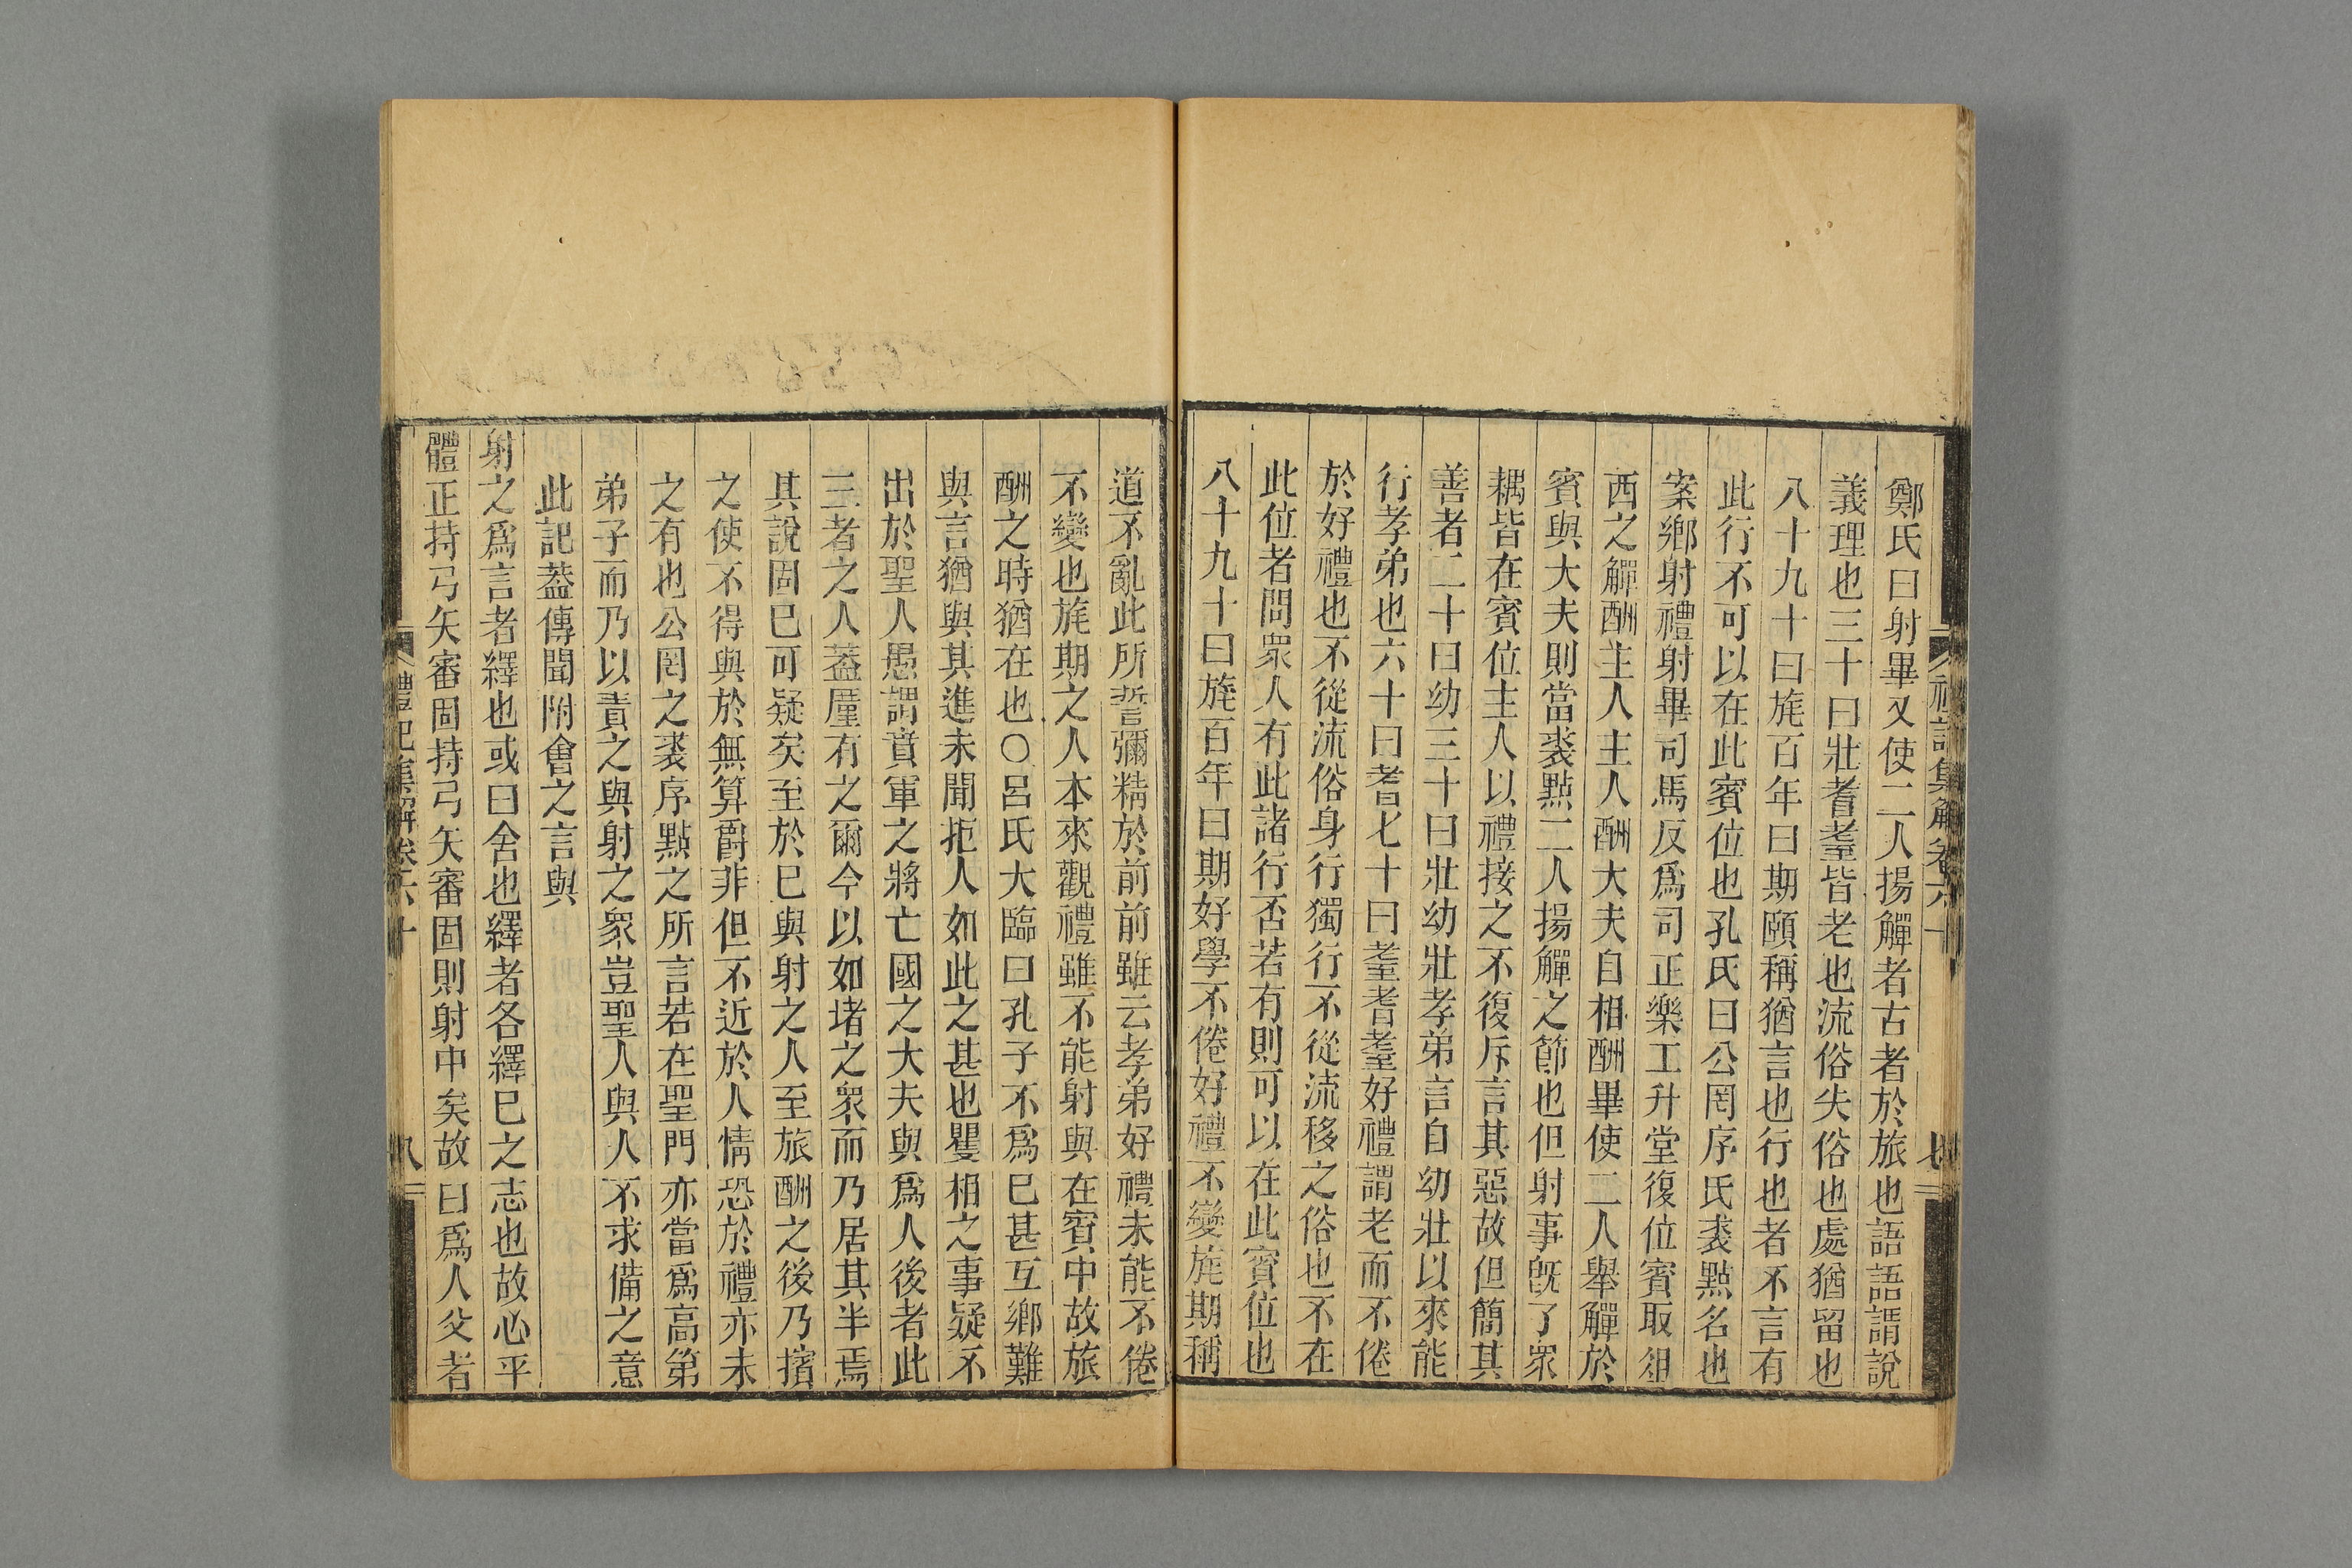 禮記集解卷六十
七
鄭氏曰射畢又使二人揚觶者古者於旅也語語謂說
義理也三十曰壯耆耋皆老也流俗失俗也處猶留也
八十九十曰旄百年曰期頤稱猶言也行也者不言有
此行不可以在此賓位也孔氏曰公罔序氏裘㸃名也
案鄉射禮射畢司馬反爲司正樂工升堂復位賓取俎
西之觶酬主人主人酬大夫自相酬畢使二人舉觶於
賓與大夫則當裘㸃二人揚觶之節也但射事旣了衆
耦皆在賓位主人以禮接之不復斥言其惡故但簡其
善者二十曰幼三十曰壯幼壯孝弟言自幼壯以來能
行孝弟也六十曰耆七十曰耋耆耋好禮謂老而不倦
於好禮也不從流俗身行獨行不從流移之俗也不在
此位者問衆人有此諸行否若有則可以在此賓位也
八十九十曰旄百年曰期好學不倦好禮不變旄期稱
道不亂此所誓彌精於前前雖云孝弟好禮未能不倦
不變也旄期之人本來觀禮雖不能射與在賓中故旅
酬之時猶在也○呂氏大臨曰孔子不爲已甚互鄉難
與言猶與其進未聞拒人如此之甚也矍相之事疑不
出於聖人愚謂賁軍之將亡國之大夫與爲人後者此
三者之人蓋厪有之爾今以如堵之衆而乃居其半焉
其說固已可疑矣至於已與射之人至旅酬之後乃擯
之使不得與於無算爵非但不近於人情恐於禮亦未
之有也公罔之裘序㸃之所言若在聖門亦當爲高第
弟子而乃以責之與射之衆豈聖人與人不求備之意
此記葢傳聞附會之言與
射之爲言者繹也或曰舍也繹者各繹已之志也故心平
體正持弓矢審固持弓矢審固則射中矣故曰爲人父者
禮記集解卷六十
八